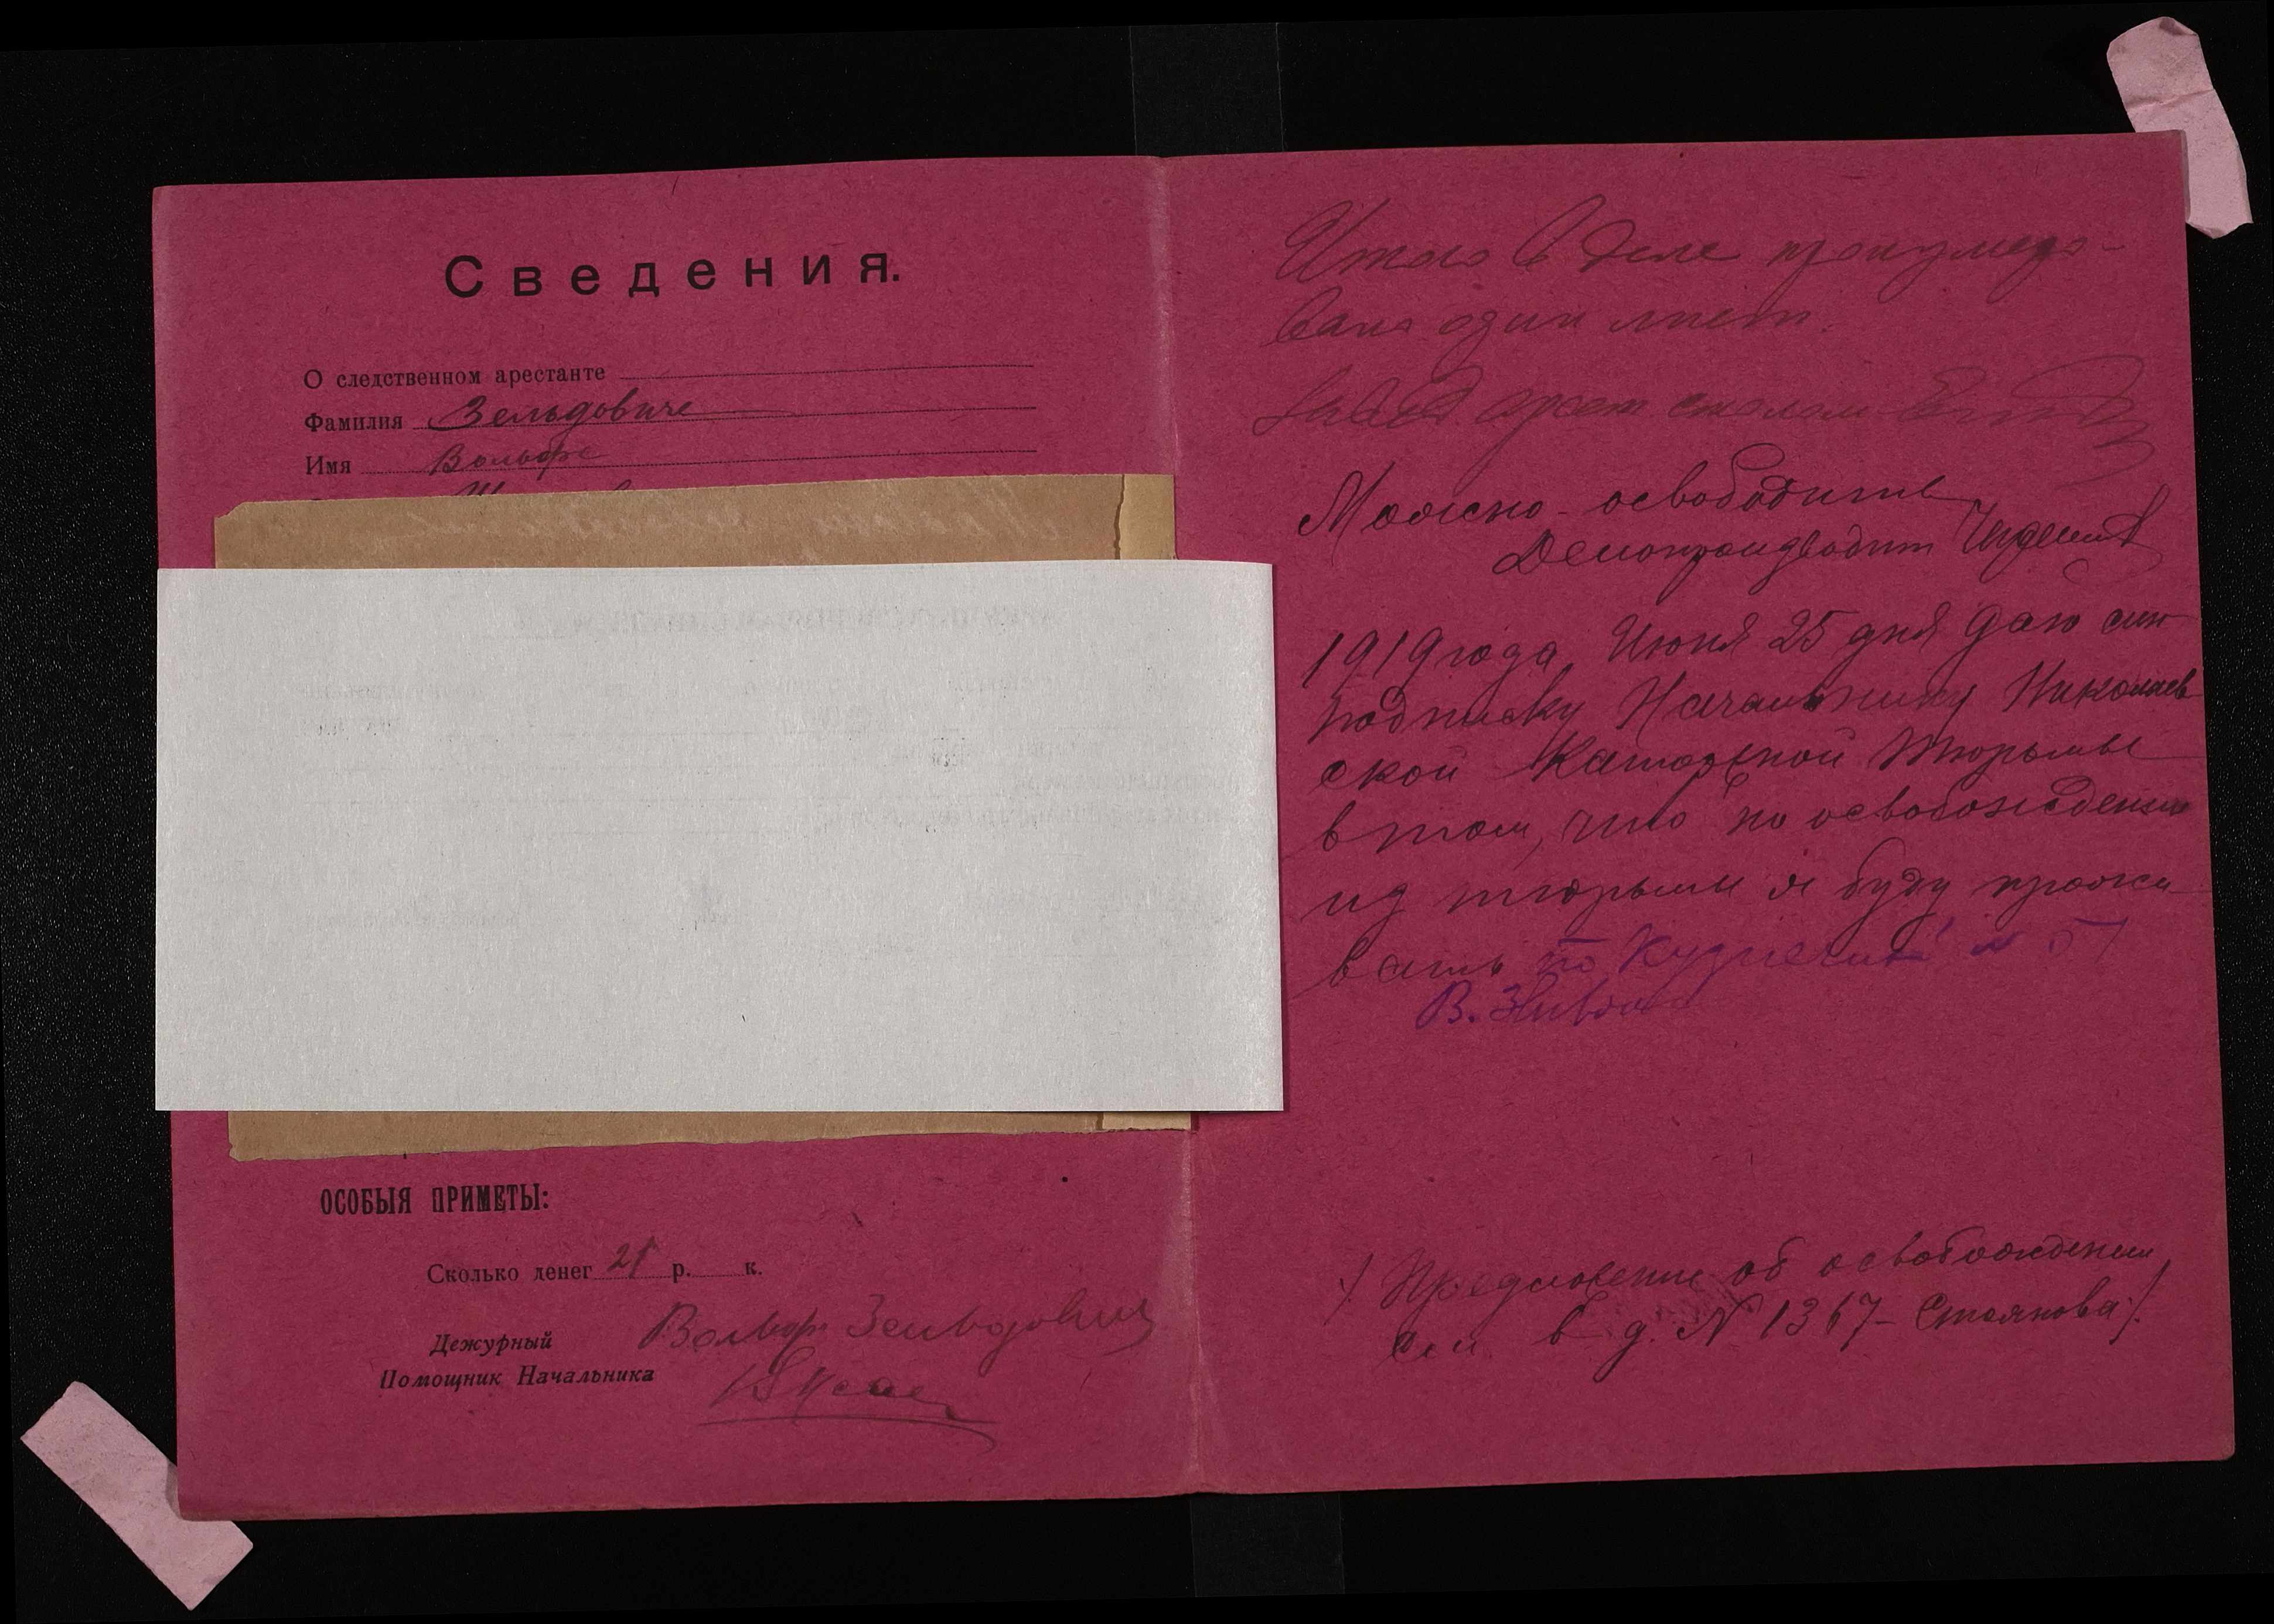 Сведения.
О следственном арестанте
Фамилия Зельдовиче
Имя Вольфе
ОСОБЫЯ ПРИМЕТЫ:
Сколько денег 25 р. к.
Вольф Зельдович
Дежурный
Помощник Начальника
Итого в деле пронумеро-
вано один лист.
Завед. арест столом
Можно освободить
Делопроизводит
1919 года, Июня 25 дня даю сию
подписку Начальнику Николаев
ской Каторжной тюрьмы
в том, что по освобождении
из тюрьмы я буду прожи
вать по Кузнечной № 57
В.
/. Предложение об освобождении
см. в д. № 1367 - Стоянова /.